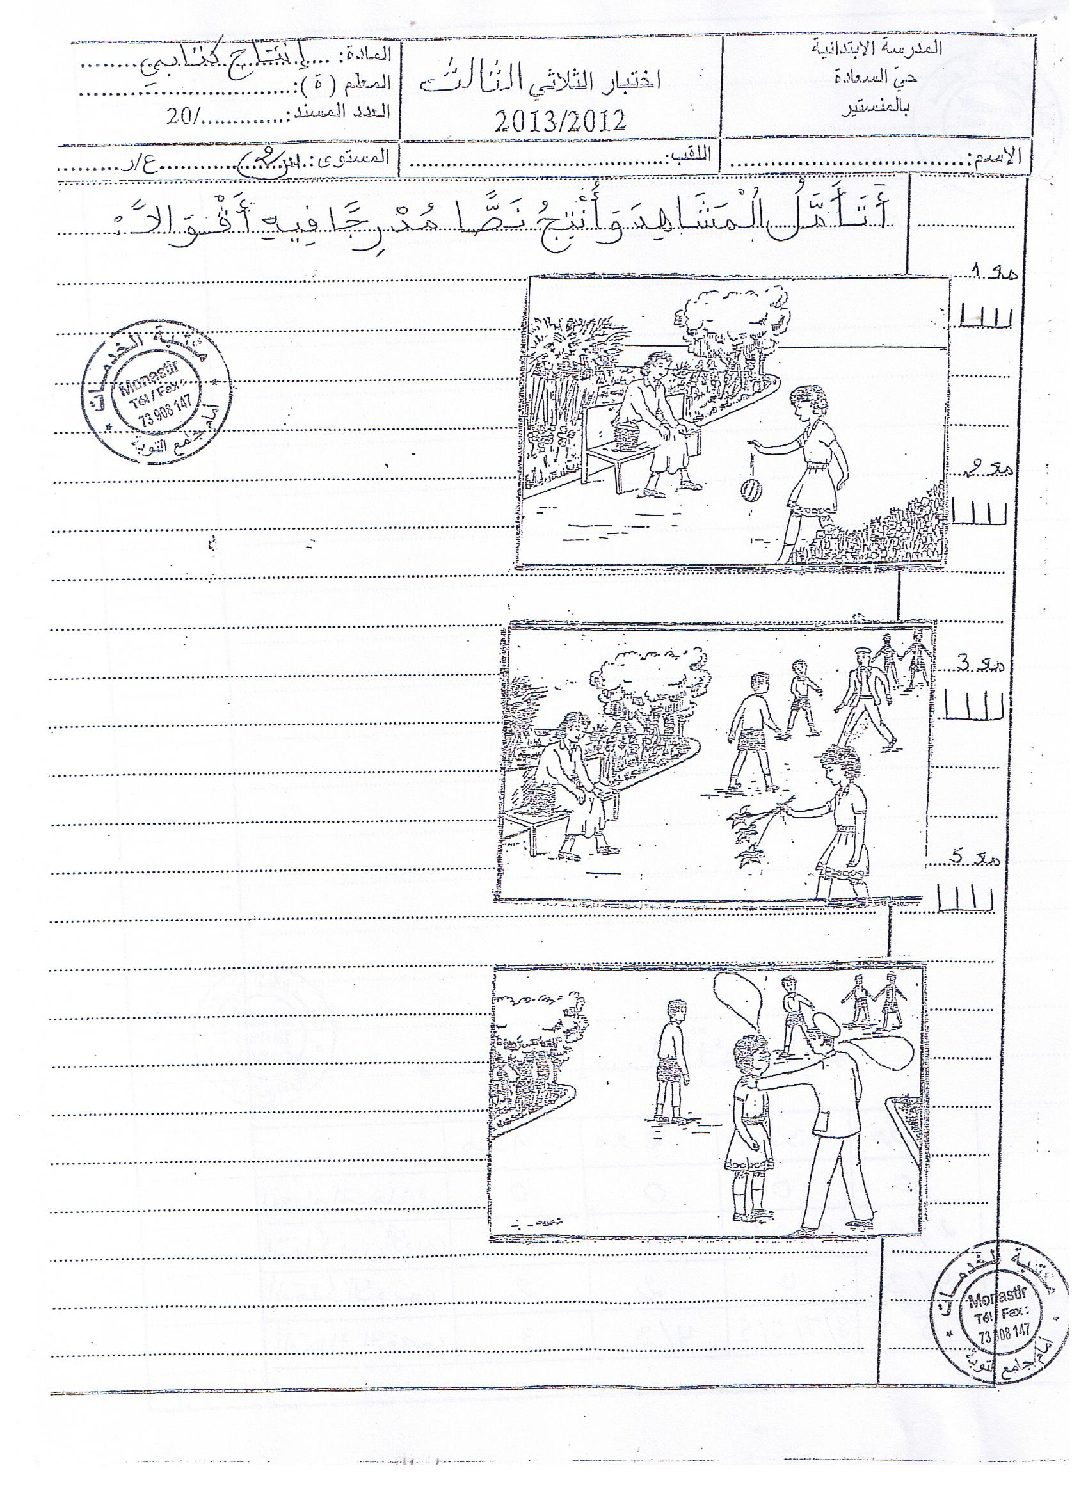 المدرسة الابتدائية
حي السعادة
بالمنستير
اختبار الثلاثي الثالث
2013/2012
المادة: إنتاج كتابي
المعلم (ة):
العدد المسند: ............/20
الاسم:
اللقب:
المستوى:
أَتَأَمَّلُ الْمَشَاهِدَ وَأُنْتِجُ نَصًّا مُدْرِجًا فِيهِ أَقْوَالاً:
مع 1
مع 2
مع 3
مع 5
مكتبة الخدمات
Monastir
Tél / Fax :
73 908 147
أمام جامع التوبة
مكتبة الخدمات
Monastir
Tél / Fax :
73 908 147
أمام جامع التوبة